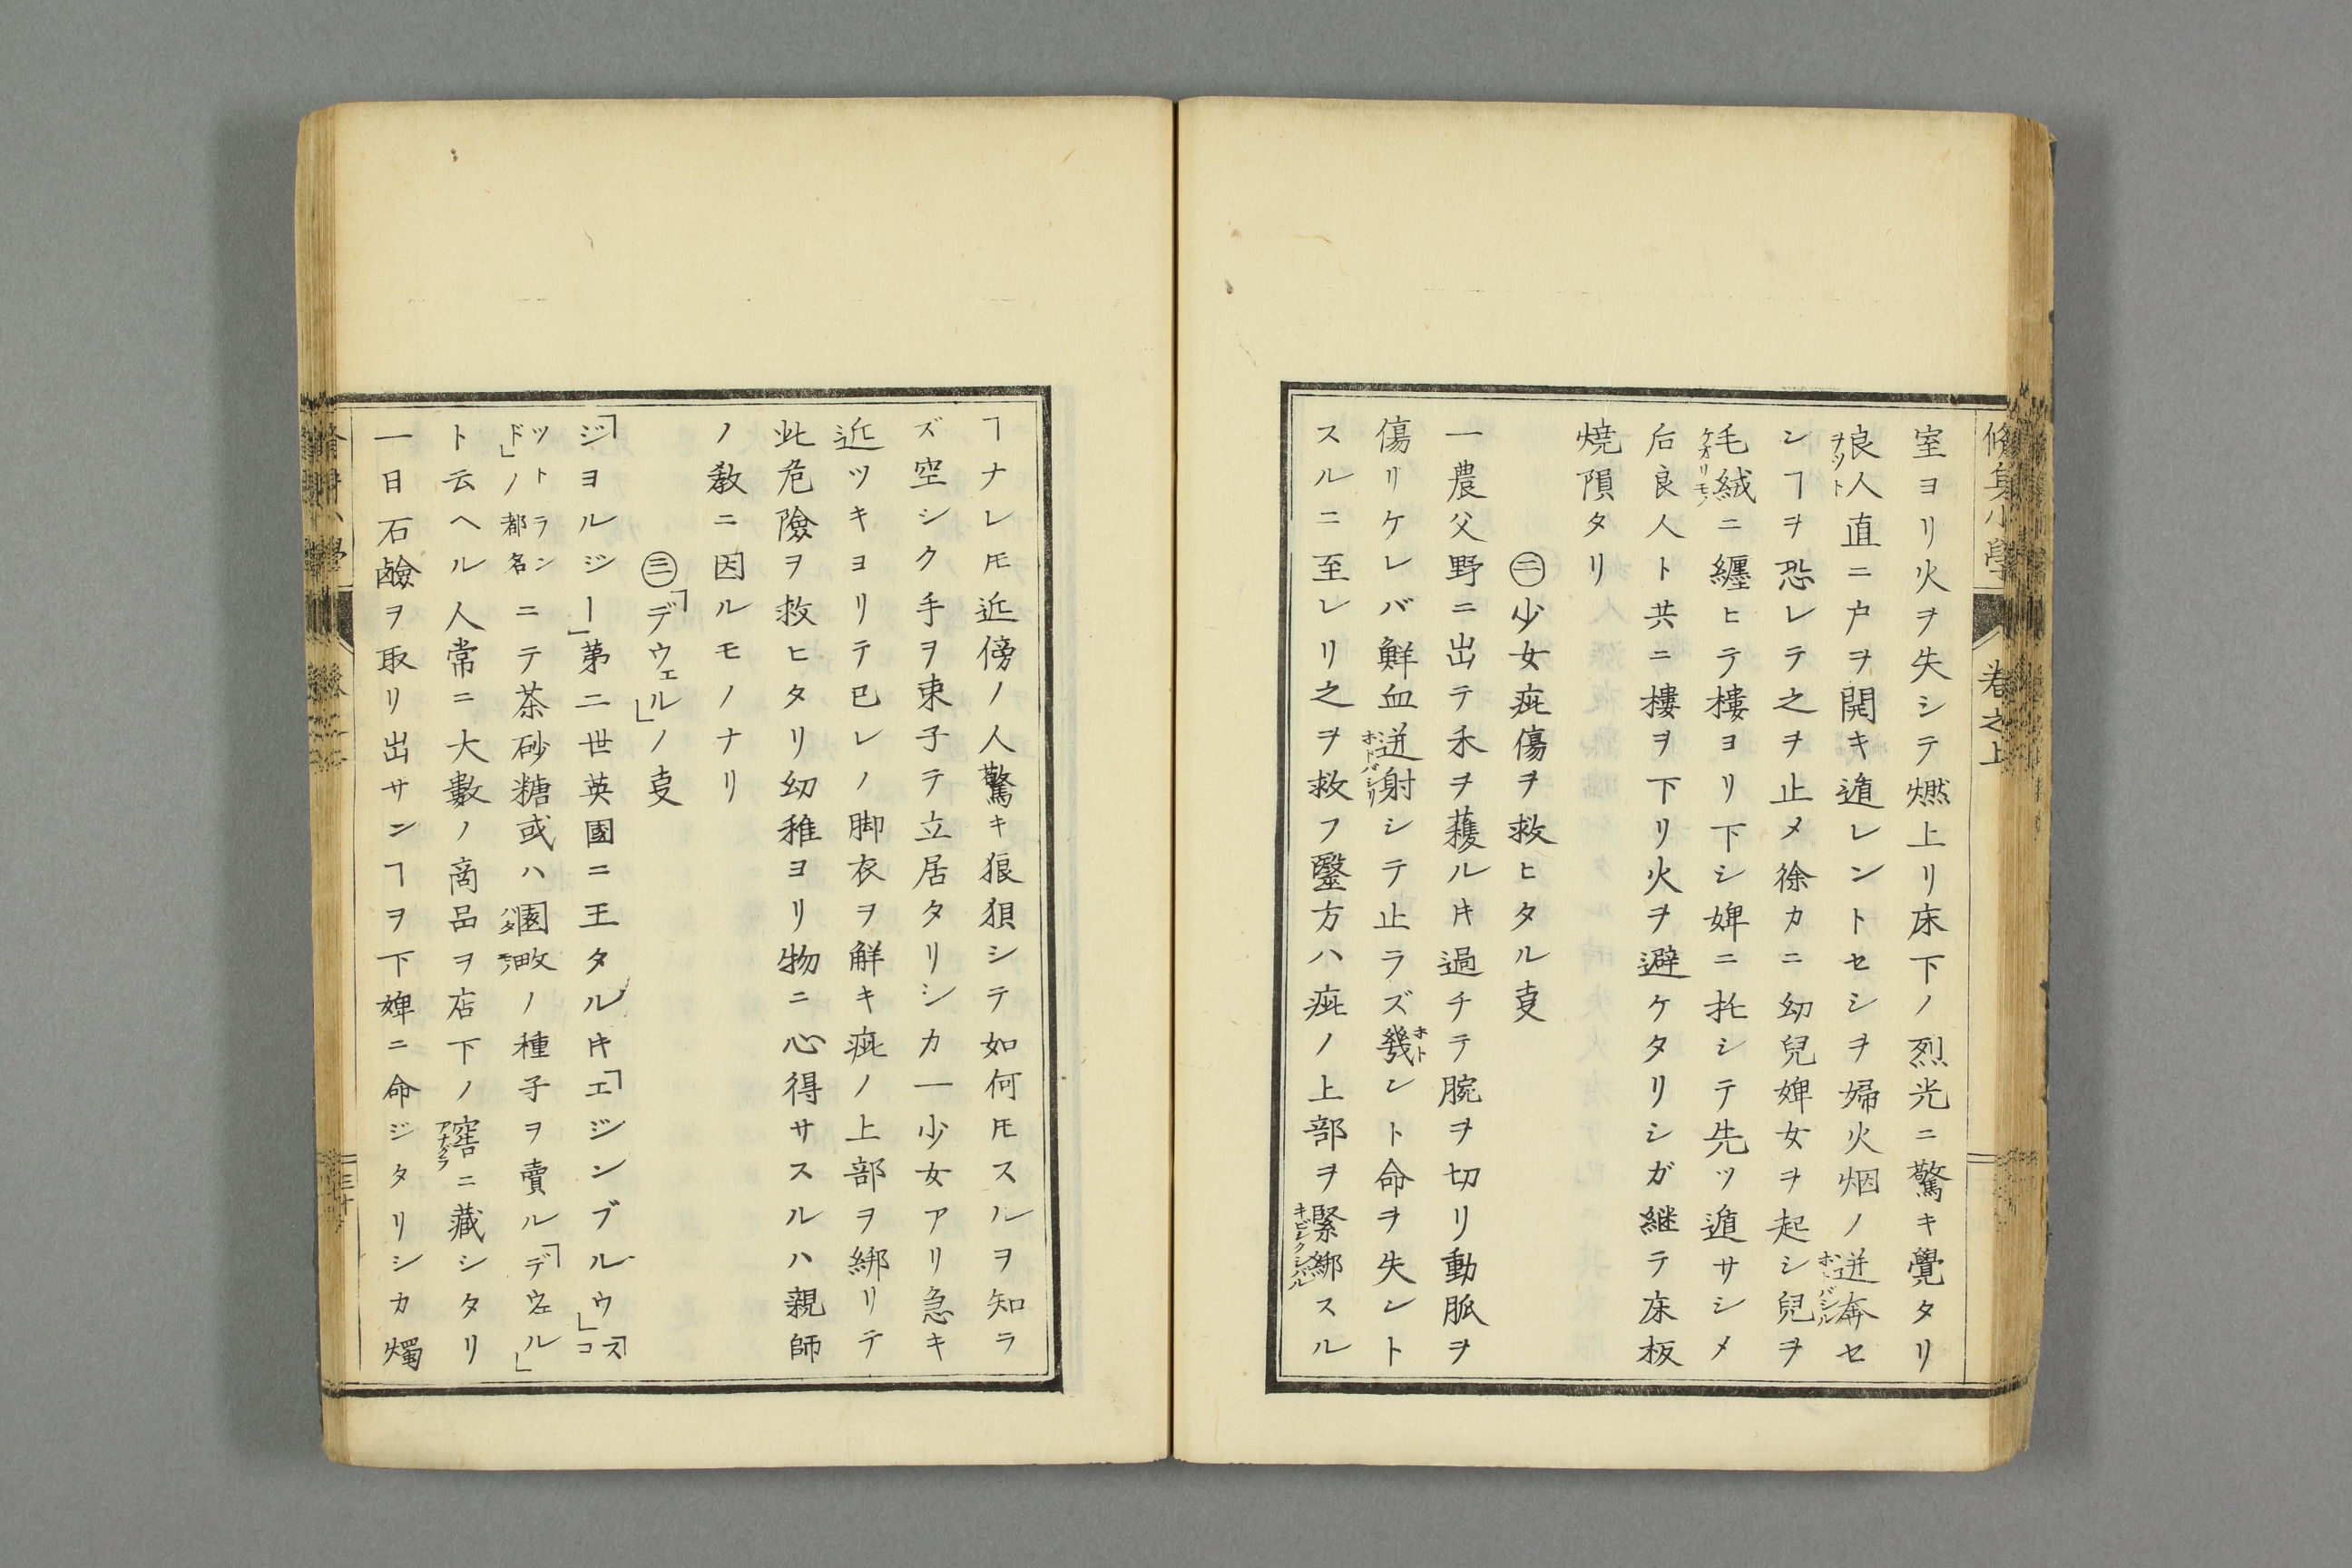 修身小學 卷之上
室ヨリ火ヲ失シテ燃上リ床下ノ烈光ニ驚キ覺タリ
良人直ニ戸ヲ開キ遁レントセシヲ婦火烟ノ迸奔セ
ヲツト
ホトバシル
ンヿヲ恐レテ之ヲ止メ徐カニ幼兒婢女ヲ起シ兒ヲ
毛絨ニ纒ヒテ樓ヨリ下シ婢ニ托シテ先ツ遁サシメ
ケオリモノ
后良人ト共ニ樓ヲ下リ火ヲ避ケタリシガ継テ床板
燒隕タリ
㊁少女疵傷ヲ救ヒタル㕝
一農父野ニ出テ禾ヲ穫ルキ過チテ腕ヲ切リ動脈ヲ
傷リケレバ鮮血迸射シテ止ラズ幾ント命ヲ失ント
ホトバシリ
ホト
スルニ至レリ之ヲ救フ醫方ハ疵ノ上部ヲ緊綁スル
キビシクシバル
ヿナレ𪜈近傍ノ人驚キ狼狽シテ如何𪜈スルヲ知ラ
ズ空シク手ヲ束子テ立居タリシカ一少女アリ急キ
近ツキヨリテ已レノ脚衣ヲ解キ疵ノ上部ヲ綁リテ
此危險ヲ救ヒタリ幼稚ヨリ物ニ心得サスルハ親師
ノ教ニ因ルモノナリ
㊂「デウェル」ノ㕝
「ジヨルジー」第二世英國ニ王タルキ「エジンブルウ」「スコ
ットランド」ノ都名ニテ茶砂糖或ハ園畋ノ種子ヲ賣ル「デウェル」
ト云ヘル人常ニ大數ノ商品ヲ店下ノ窖ニ藏シタリ
アナグラ
一日石鹼ヲ取リ出サンヿヲ下婢ニ命ジタリシカ燭